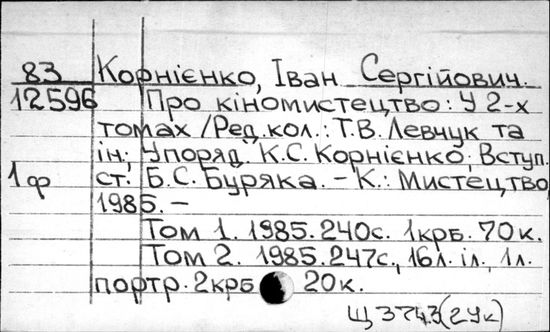 83 Корнієнко, Іван Сергійович.
12596 Про кіномистецтво: У 2-х
томах /Ред.кол.: Т.В. Левчук та
ін.; Упоряд. К.С. Корнієнко; Вступ.
1ф ст. Б.С. Буряка. – К.: Мистецтво,
1985. –
Том 1. 1985. 240с. 1крб. 70к.
Том 2. 1985. 247с., 16л. іл., 1л.
портр. 2крб 20к.
Щ3743(2Ук)